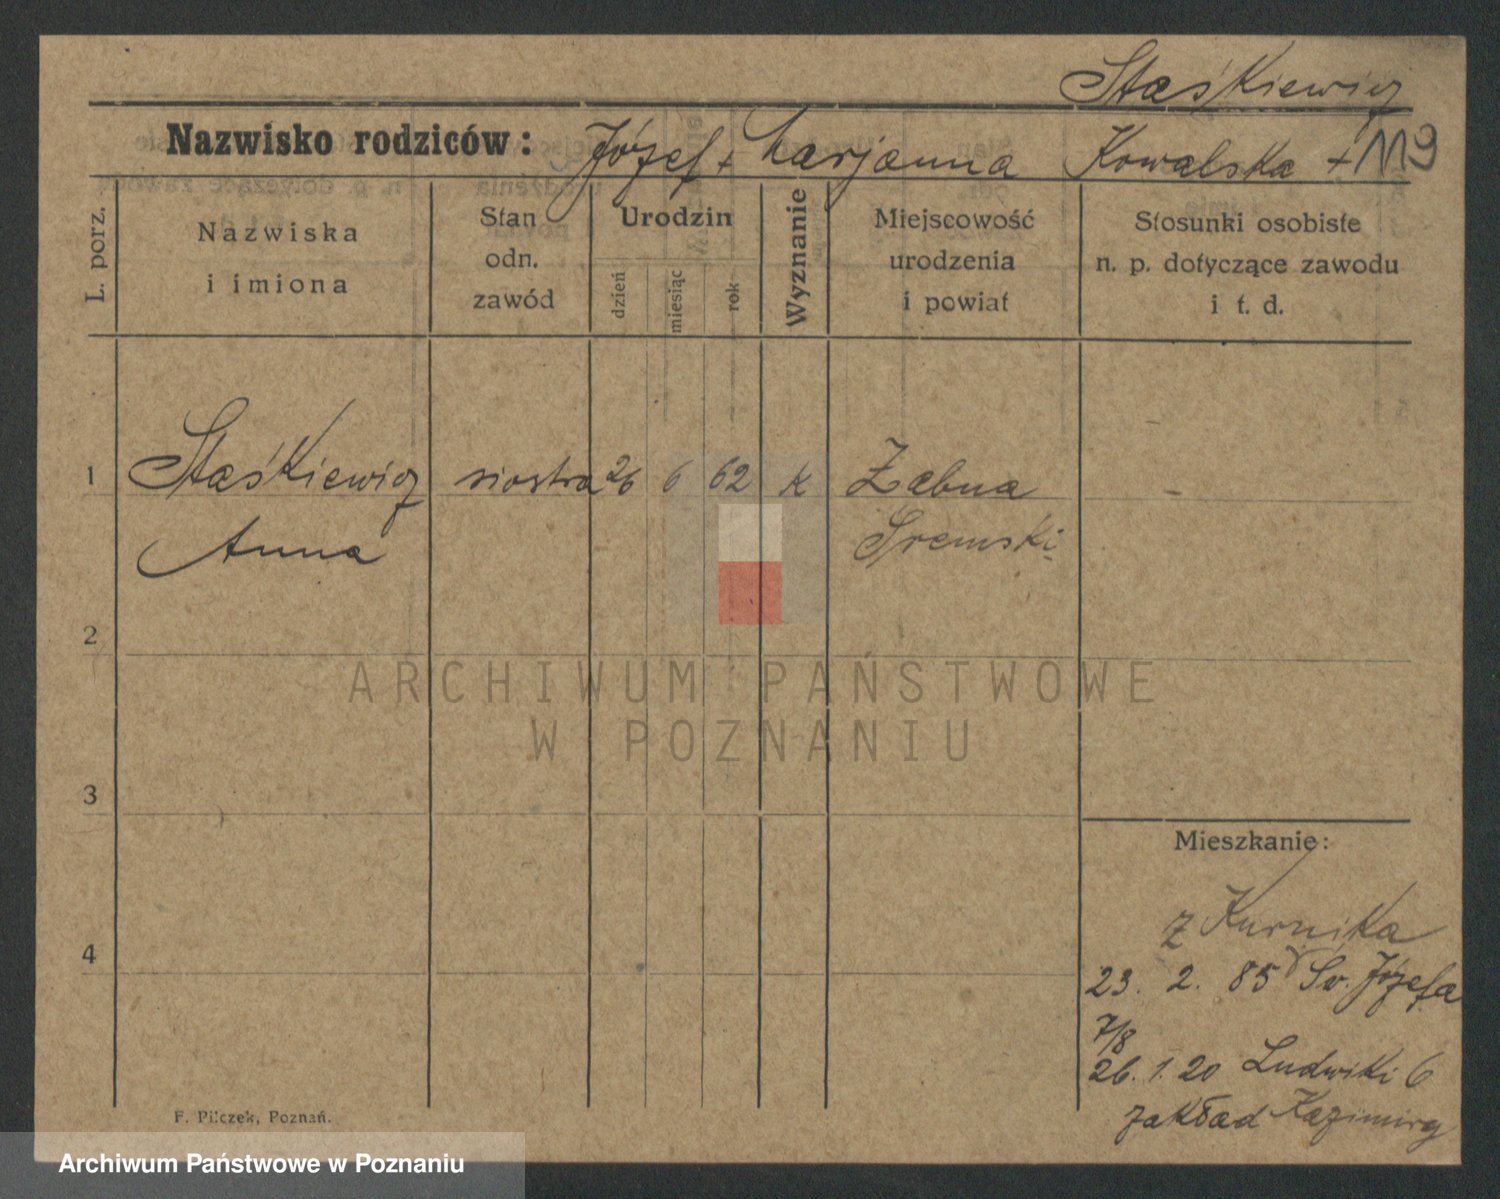 Staśkiewicz
Nazwisko rodziców: Józef + Marjanna Kowalska + 119
L. porz.
Nazwiska
i imiona
Stan
odn.
zawód
Urodzin
dzień
miesiąc
rok
Wyznanie
Miejscowość
urodzenia
i powiat
Stosunki osobiste
n. p. dotyczące zawodu
i t. d.
1 Staśkiewicz siostra 26 6 62 k Żabna
Anna Śremski
2
3
4
Mieszkanie:
z Kurnika
23. 2. 85 Św. Józefa
7/8
26. 1. 20 Ludwiki 6
zakład Kazimiry
F. Pilczek, Poznań.
ARCHIWUM PAŃSTWOWE
W POZNANIU
Archiwum Państwowe w Poznaniu